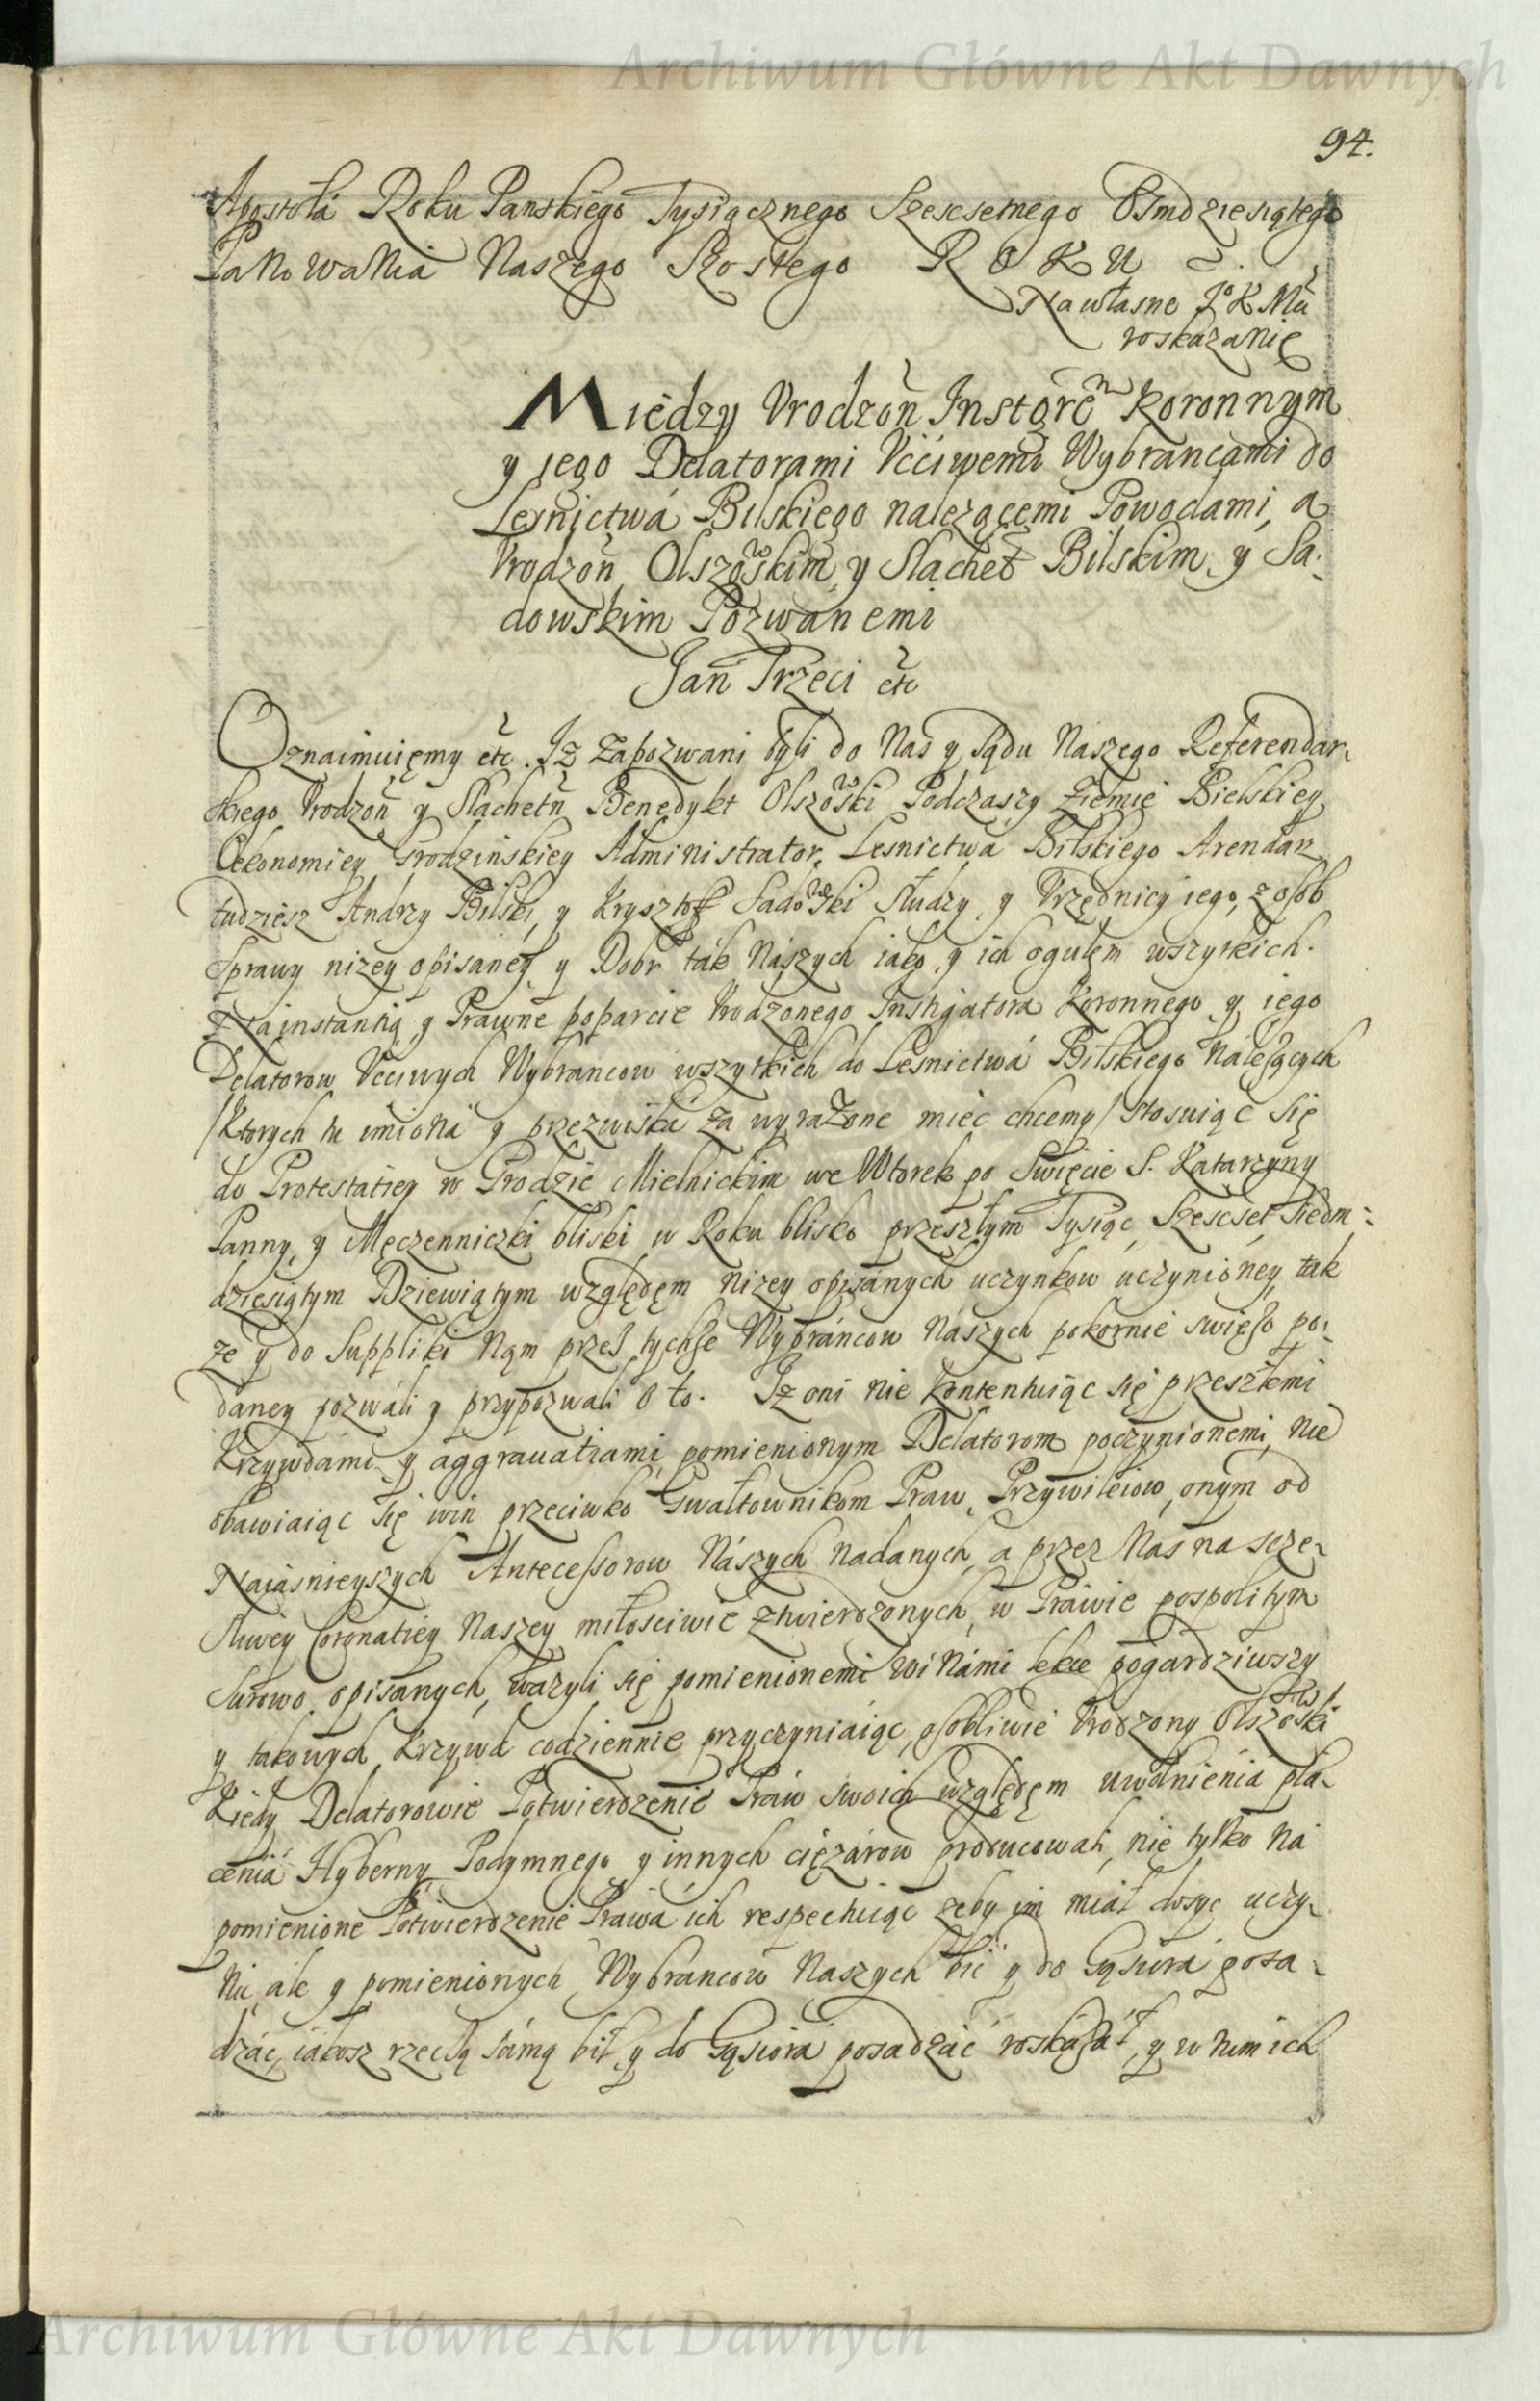 Archiwum Główne Akt Dawnych
94.
Apostołá Roku Panskiego Tysiącznego Szescsetnego Osmdziesiątego
Panowania Naszego Szostego ROKU
Na własne Jo K Mći
roskazanię
Między Vrodzoń Instgŕem Koronnym
y iego Delatorami Vććiwemi Wybrancami do
Lesnictwá Bilskiego nalezącemi Powodami, a
Vrodzoń Olszowskim y Slachet Bilskim y Sa-
dowskim Pozwánemi
Jan Trzeci etc
Oznaimuięmy etc. Iz zapozwani byli do Nas y sądu Naszego Referendar-
skiego Vrodzoń y Slachetń Benedykt Olszowski Podczaszy Ziemie Bielskiey
Oekonomiey Grodzinskiey Administrator, Lesnictwa Bilskiego Arendarz
tudziesz Andrzy Bilski, y Krysztof Sadowski Słudzy y Vrzędnicy iego, z osob
sprawy nizey opisaney y Dobr ták Nászych iako y ich ogułęm wszytkich.
Zá instantią y Prawne poparcie Vrodzonego Instigatora Koronnego y iego
Delatorow Vcciwych Wybrancow wszytkich do Lesnictwá Bilskiego Nálezących
/Ktorych tu imioná y przezwiská za wyrazone miec chcemy/ stosuiąc się
do Protestatiey w Grodzie Mielnickim we Wtorek po Swięcie S. Katarzyny
Panny y Męczenniczki bliski w Roku blisko przeszłym Tysiąc Szescset siedm-
dziesiątym Dziewiątym względęm nizey opisánych uczynkow uczynióney, tak
ze y do Suppliki Nąm przez tychze Wybráncow Nászych pokornie swiezo po-
daney pozwáli y przypozwali o to. Iz oni nie kontentuiąc się przeszłemi
Krzywdámi y aggrauatiami pomienionym Delatorom poczynionemi, nie
obawiaiąc się win przeciwko Gwałtownikom Praw, Przywileiow, onym od
Naiasnieyszych Antecessorow Nászych nadanych, a przez Nas na scze-
sliwey Coronatiey Naszey miłosciwie ztwierdzonych, w Práwie pospolitym
surowo opisanych, wazyli się pomienionemi Winámi lekce pogardziwszy
y takowych Krzywd codziennie przyczyniaiąc, osobliwie Vrodzony Olszowski
Kiedy Delatorowie Potwierdzenie Praw swoich względęm uwolnieniá pła-
ceniá Hyberny Podymnego y innych cięzárow producowali, nie tylko ná
pomienione Potwierdzenie Prawá ich respectuiąc zeby im miał dosyc uczy-
nić ale y pomienionych Wybrancow Naszych bić y do Gąsiorá posa-
dzáć, iakosz rzeczą sámą bił y do Gąsiorá posadzáć roskazał, y w nim ich
Archiwum Główne Akt Dawnych